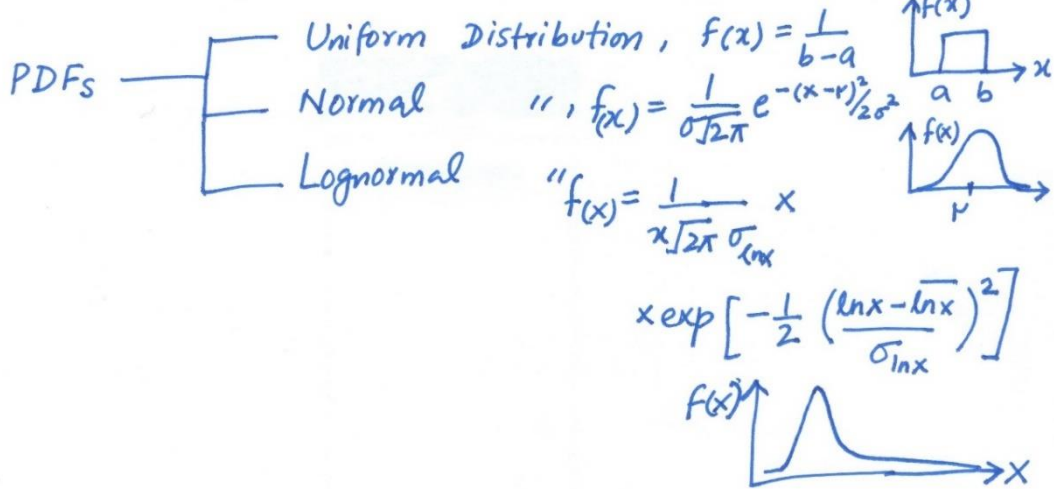 PDFs
Uniform Distribution, f(x) = 1/(b-a)
f(x)
x
a b
Normal ", f(x) = 1/(σ√2π) e^-(x-μ)²/2σ²
f(x)
μ
Lognormal " f(x) = 1/(x√2π σlnx) ×
× exp [-1/2 ((lnx - l̅n̅x̅)/σlnx)²]
f(x)
x